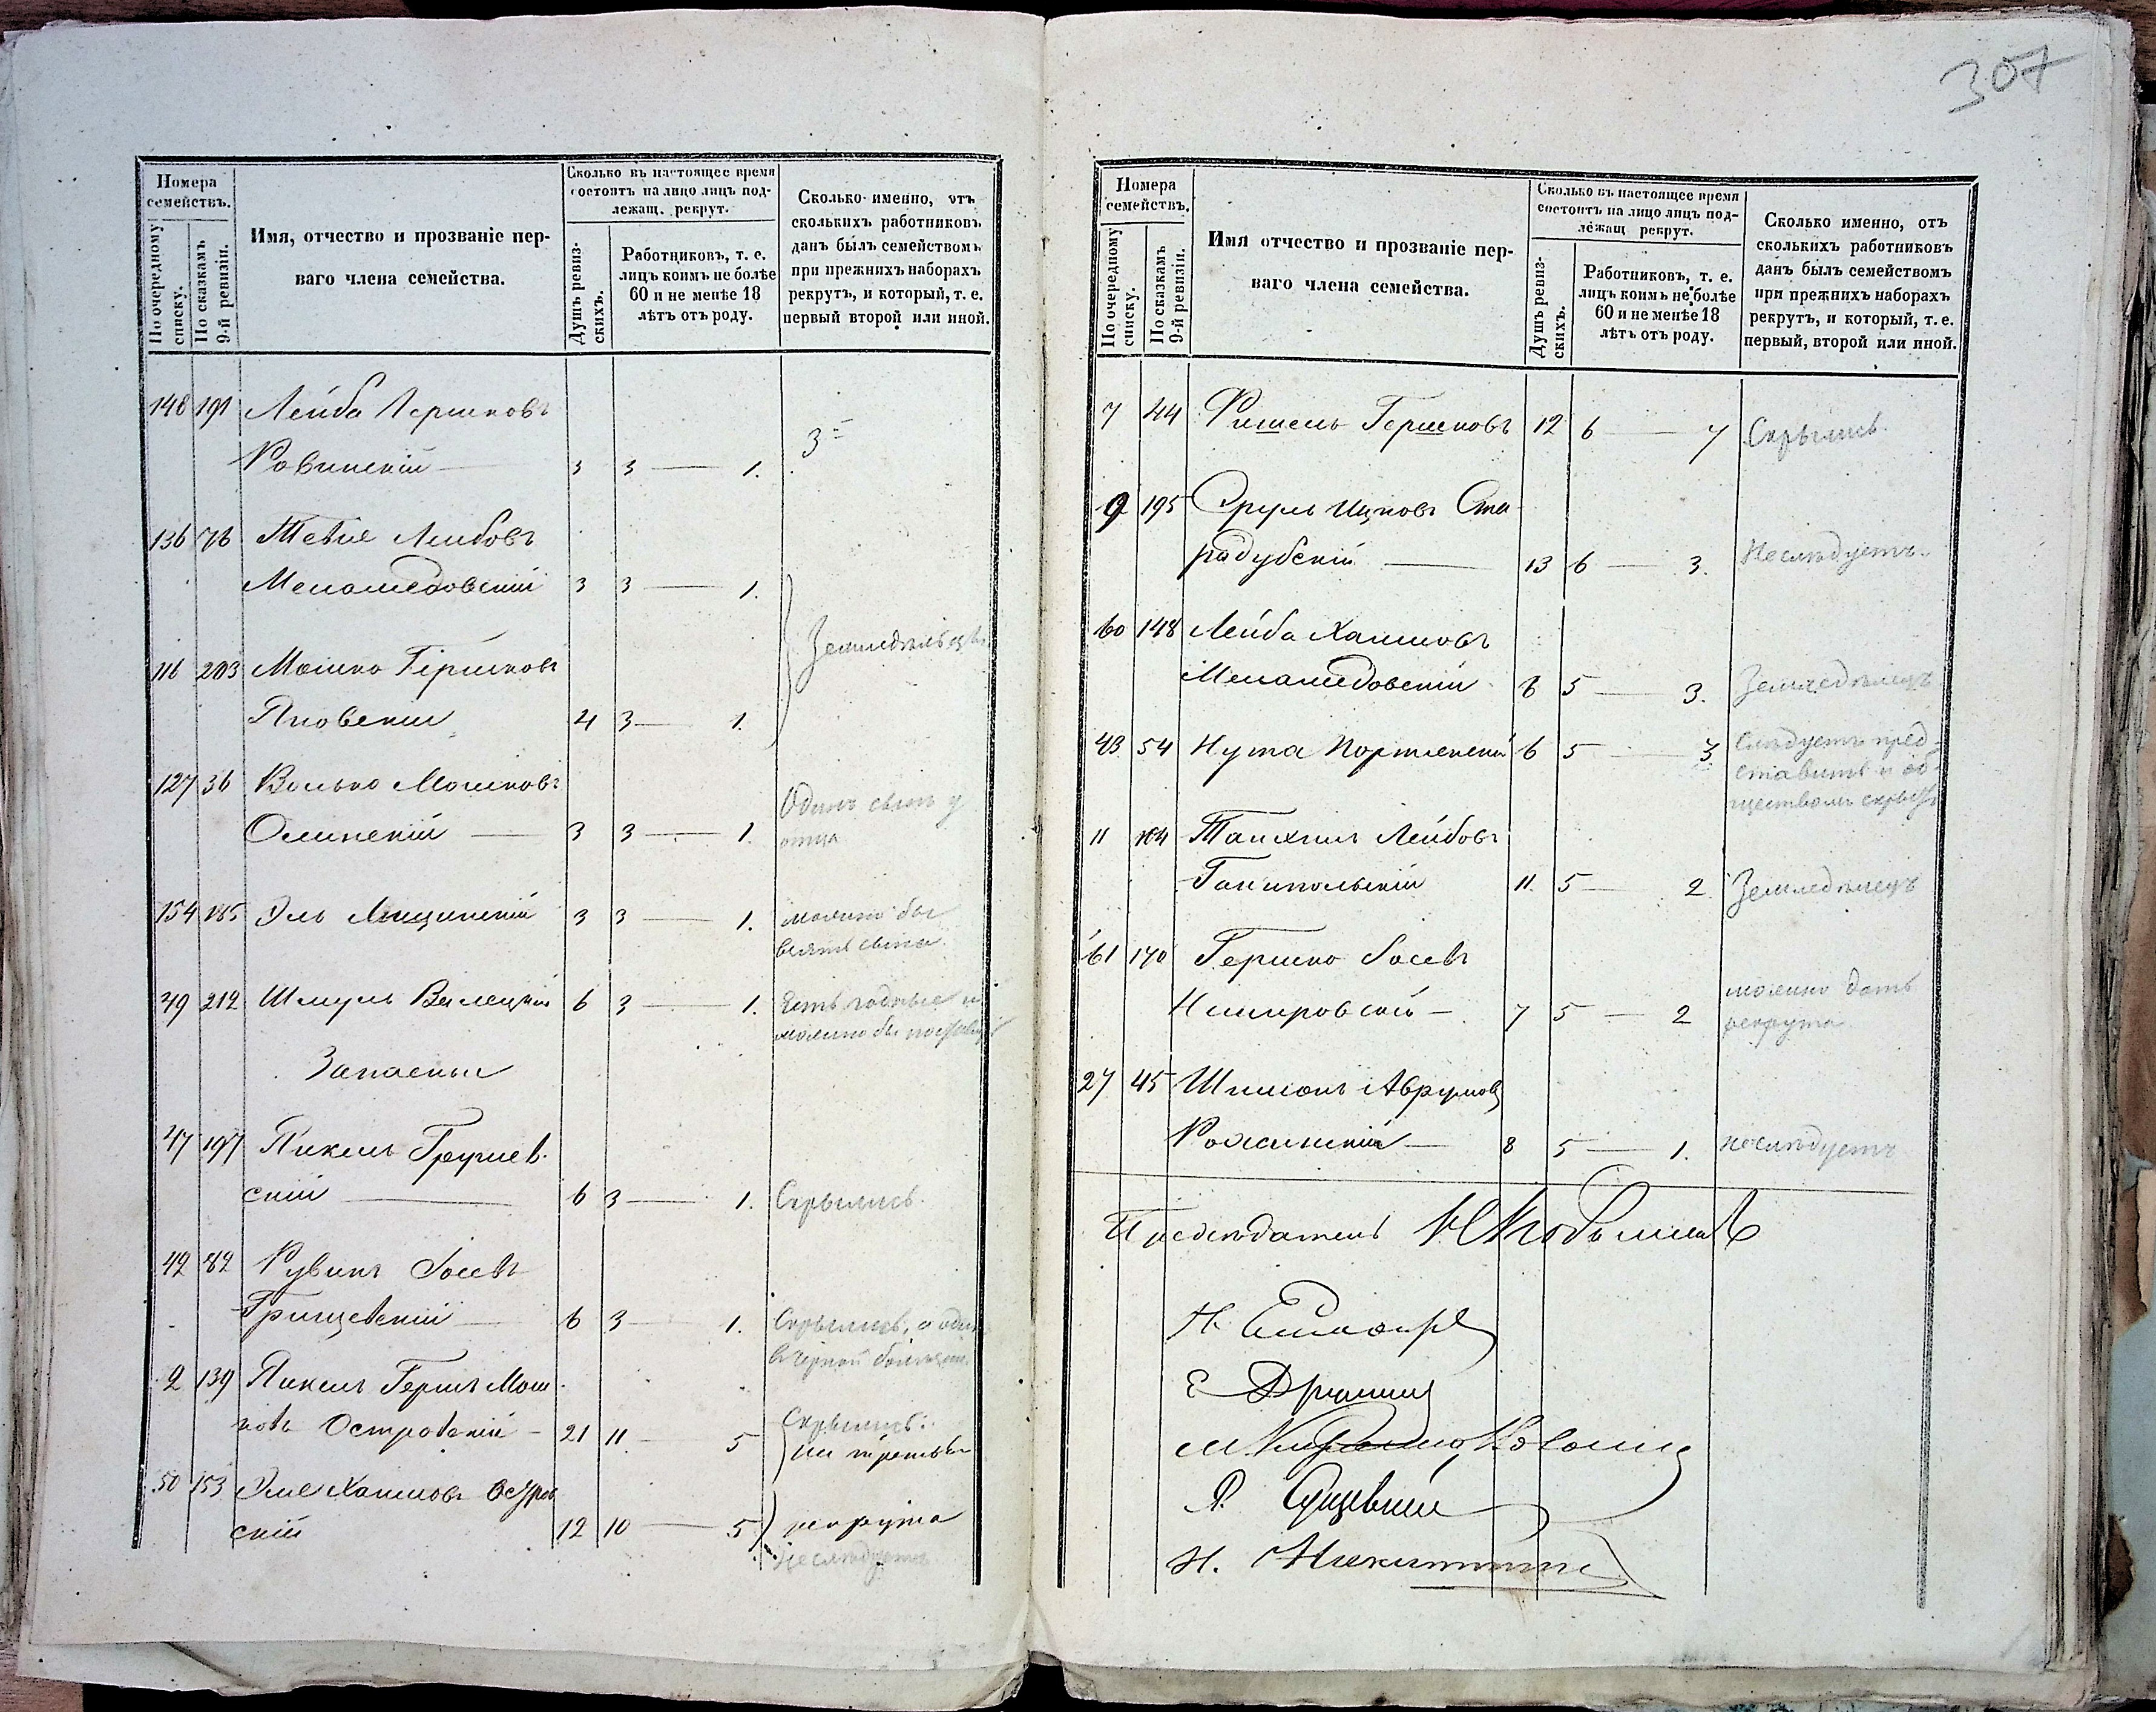 307
Номера
семействъ.
По очередному
списку.
По сказкамъ
9-й ревизіи.
Имя, отчество и прозваніе пер-
ваго члена семейства.
Сколько въ настоящее время
состоитъ на лицо лицъ под-
лежащ. рекрут.
Душъ ревиз-
скихъ.
Работниковъ, т. е.
лицъ коимъ не болѣе
60 и не менѣе 18
лѣтъ отъ роду.
Сколько именно, отъ
сколькихъ работниковъ
данъ былъ семействомъ
при прежнихъ наборахъ
рекрутъ, и который, т. е.
первый второй или иной.
148 191 Лейба Гершковъ
Ровинскій 3 3 — 1.
136 76 Тевіе Лейбовъ
Менашедовскій 3 3 — 1.
Земледѣльцы
116 203 Мошко Гершковъ
Яновскій 4 3 — 1.
127 36 Волько Мошковъ
Олинскій — 3 3 — 1.
Одинъ сынъ у
отца
154 185 Эль Лещинскій 3 3 — 1. можно бы
взять сына
49 212 Шмуль Вилецкій 6 3 — 1. Есть годные и
можно бы
Запасные
47 197 Янкель Грушев-
скій — 6 3 — 1. Скрылись.
42 82 Рувинъ Іосевъ
Грищевскій — 6 3 — 1. Скрылись, а один
2 139 Янкель Гершъ Мош-
ковъ Островскій — 21 11 — 5 Скрылись.
50 153 Эле Хаимовъ Остров
скій 12 10 — 5 рекрута
Не слѣдуетъ
Номера
семействъ.
По очередному
списку.
По сказкамъ
9-й ревизіи.
Имя отчество и прозваніе пер-
ваго члена семейства.
Сколько въ настоящее время
состоитъ на лицо лицъ под-
лежащ рекрут.
Душъ ревиз-
скихъ.
Работниковъ, т. е.
лицъ коимъ не болѣе
60 и не менѣе 18
лѣтъ отъ роду.
Сколько именно, отъ
сколькихъ работниковъ
данъ былъ семействомъ
при прежнихъ наборахъ
рекрутъ, и который, т. е.
первый, второй или иной.
7 44 Фишель Гершковъ 12 6 — 7 Скрылись.
9 195 Сруль Ицковъ Ста-
радубскій — 13 6 — 3. Не слѣдуетъ.
60 148 Лейба Хаимовъ
Менашедовскій 6 5 — 3. Земледѣлецъ
43 54 Нута Портненскій 6 5 — 3 Слѣдуетъ пред-
ставить и об-
ществомъ
11 104 Танхимъ Лейбовъ
Ганипольскій 11. 5 — 2 Земледѣлецъ
61 170 Гершко Іосевъ
Немировскій — 7 5 — 2 можно дать
рекрута
27 45 Шимонъ Аврумов
Рожинскій — 8 5 — 1. не слѣдуетъ
Предсѣдатель
Н.
Е
Н. Никитинъ